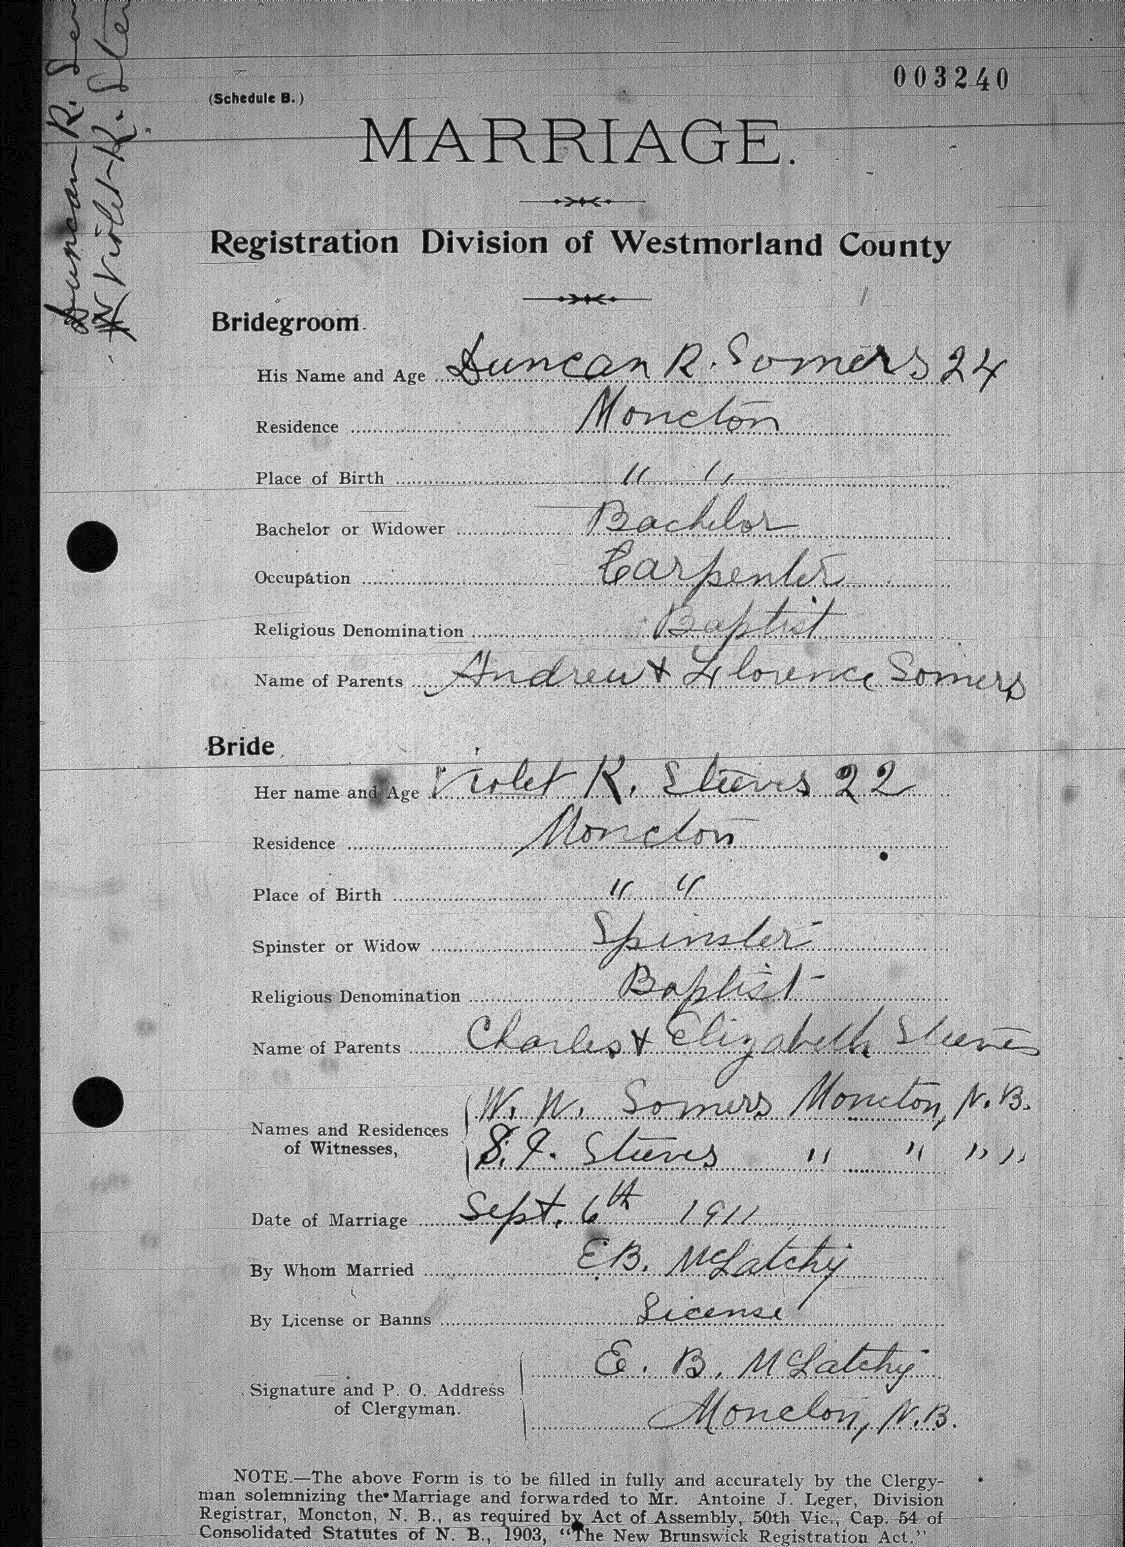 003240
(Schedule B.)
MARRIAGE.
Registration Division of Westmorland County
Bridegroom.
His Name and Age Duncan R. Somers 24
Residence Moncton
Place of Birth " "
Bachelor or Widower Bachelor
Occupation Carpenter
Religious Denomination Baptist
Name of Parents Andrew & Florence Somers
Bride
Her name and Age Violet K. Steeves 22
Residence Moncton
Place of Birth " "
Spinster or Widow Spinster
Religious Denomination Baptist
Name of Parents Charles & Elizabeth Steeves
W. W. Somers Moncton, N.B.
Names and Residences
of Witnesses, S. I. Steeves " " " "
Date of Marriage Sept. 6th 1911
By Whom Married E.B. McLatchy
By License or Banns License
E. B. McLatchy
Signature and P. O. Address
of Clergyman. Moncton, N.B.
NOTE.—The above Form is to be filled in fully and accurately by the Clergy-
man solemnizing the Marriage and forwarded to Mr. Antoine J. Leger, Division
Registrar, Moncton, N. B., as required by Act of Assembly, 50th Vic., Cap. 54 of
Consolidated Statutes of N. B., 1903, "The New Brunswick Registration Act."
Duncan R.
Violet R.